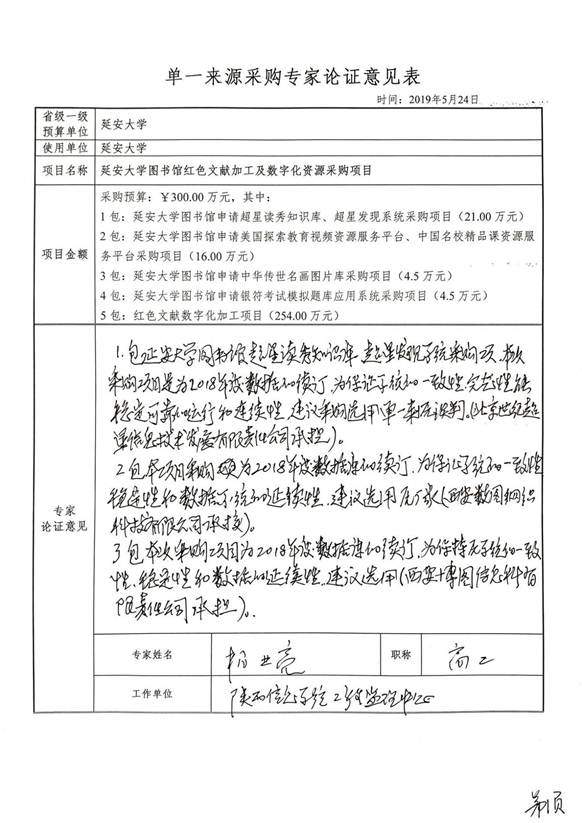 单一来源采购专家论证意见表
时间：2019年5月24日
省级一级
预算单位
延安大学
使用单位
延安大学
项目名称
延安大学图书馆红色文献加工及数字化资源采购项目
项目金额
采购预算：￥300.00万元，其中：
1包：延安大学图书馆申请超星读秀知识库、超星发现系统采购项目（21.00万元）
2包：延安大学图书馆申请美国探索教育视频资源服务平台、中国名校精品课资源服
务平台采购项目（16.00万元）
3包：延安大学图书馆申请中华传世名画图片库采购项目（4.5万元）
4包：延安大学图书馆申请银符考试模拟题库应用系统采购项目（4.5万元）
5包：红色文献数字化加工项目（254.00万元）
专家
论证意见
1.包延安大学图书馆超星读秀知识库 超星发现系统采购项，本次
采购项目是为2018年度数据的续订，为保证系统的一致性、完整性能
稳定可靠的运行和连续性，建议采购选用单一来源谈判。(北京世纪超
星信息技术发展有限责任公司承担）。
2包 本项目采购为2018年度数据库的续订，为保证系统的一致性
稳定性和数据系统的延续性，建议选用(西安数图网络
科技有限公司承接）。
3包 本次采购项目为2018年度数据库的续订，为保持系统的一致
性、稳定性和数据的延续性，建议选用(西安博图信息科有
限责任公司承担）。
专家姓名
职称
高工
工作单位
陕西信息系统工程监理中心
第1页